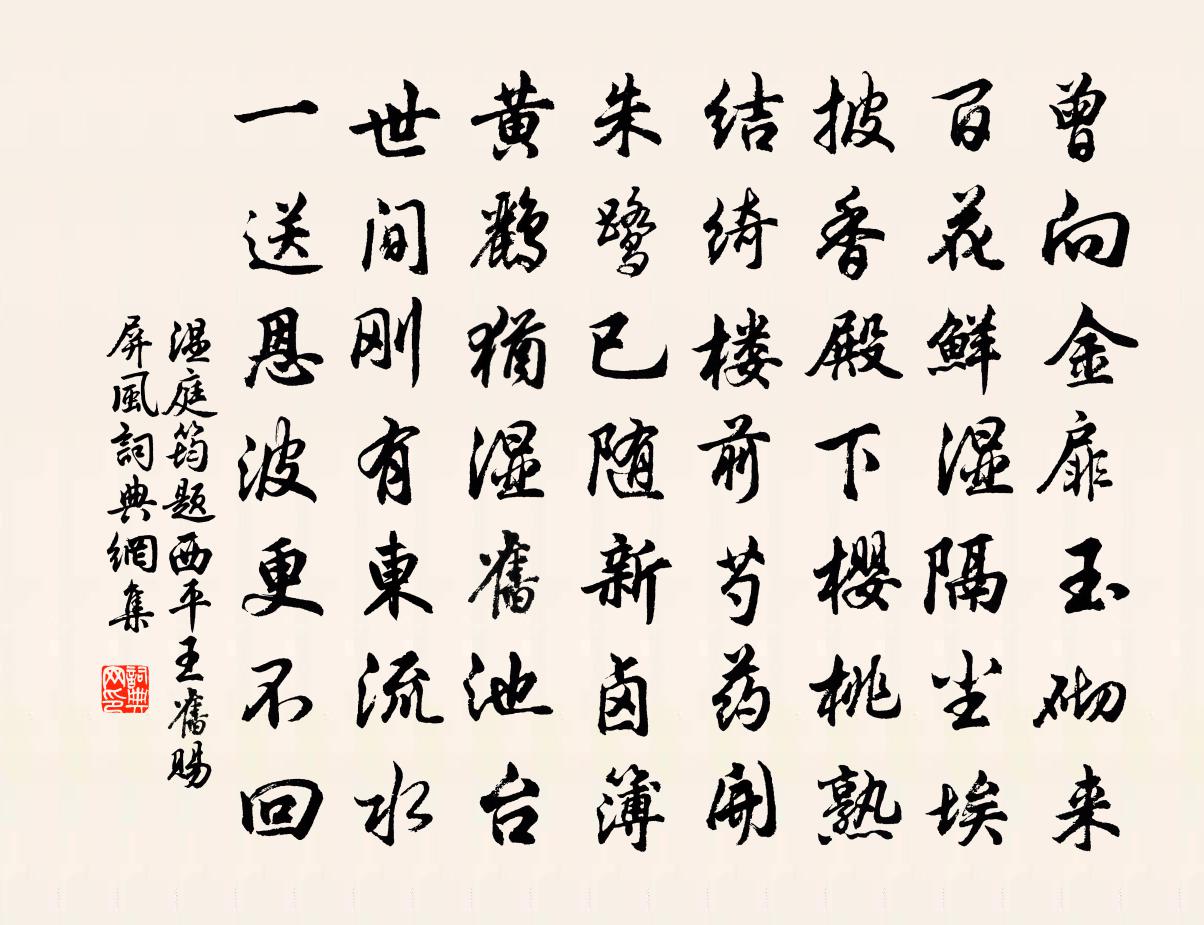 曾向金扉玉砌来
百花鲜湿隔尘埃
披香殿下樱桃熟
结绮楼前芍药開
朱鹭已随新卤簿
黄鹂犹湿舊池台
世间刚有東流水
一送恩波更不回
温庭筠题西平王舊赐
屏風詞典網集
詞典网印